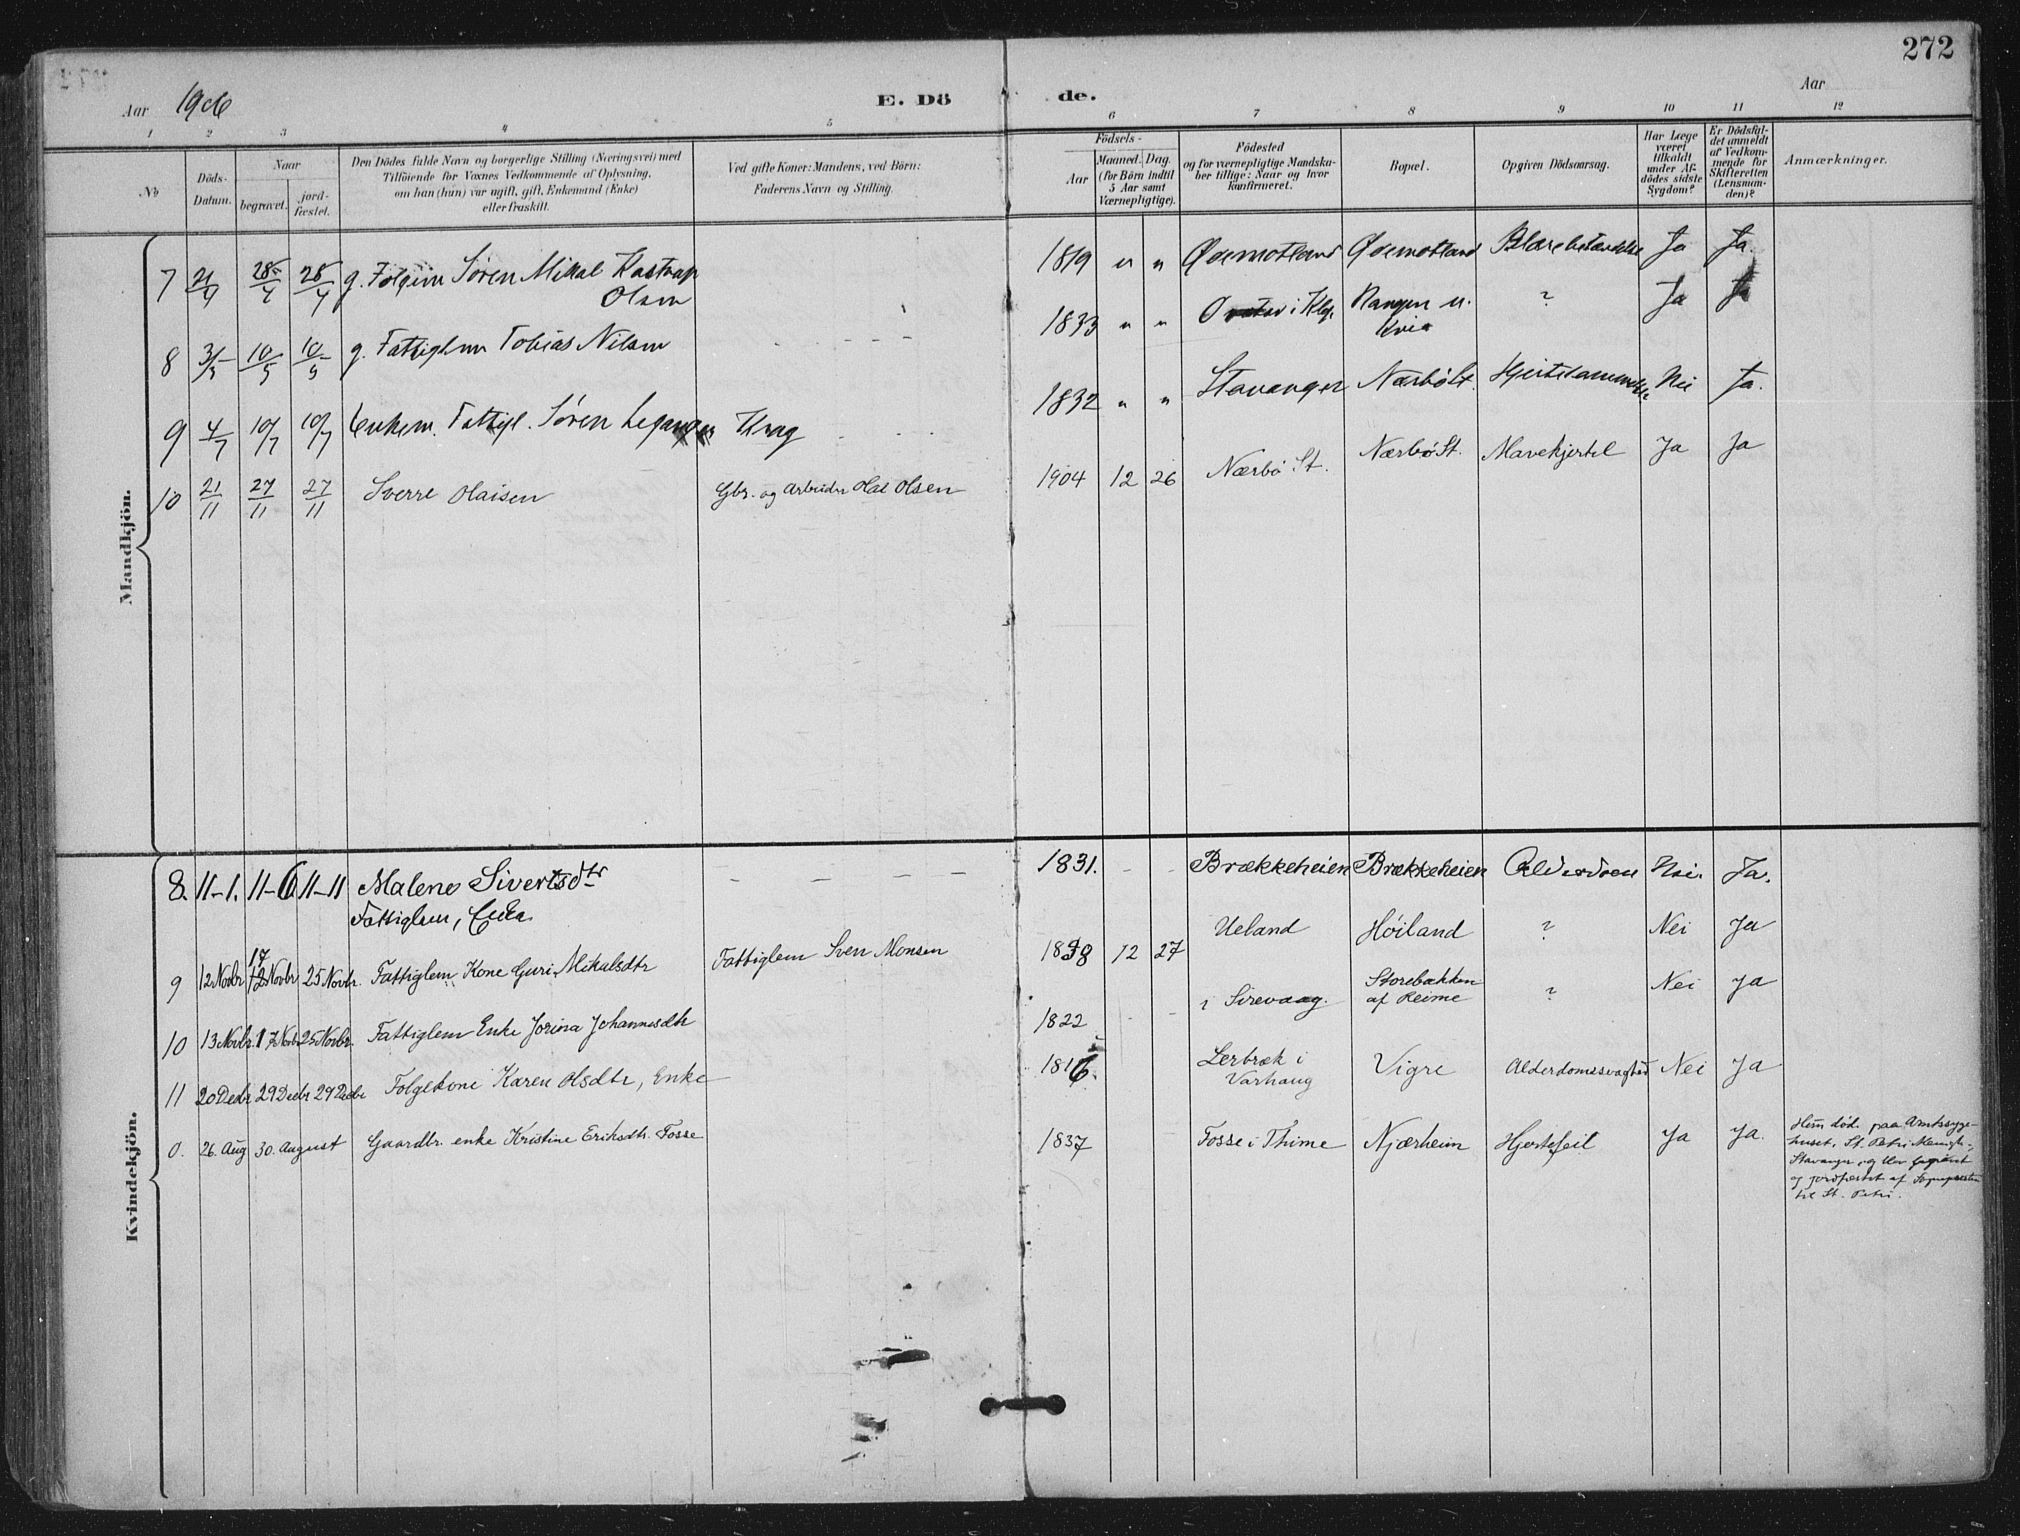 272
Aar 1906
E. Dö
de.
Aar
1 2 3 4 5 6 7 8 9 10 11 12
No
Döds-
Datum.
Naar
begravet.
jord-
fæstet.
Den Dödes fulde Navn og borgerlige Stilling (Næringsvei) med
Tilföiende for Voxnes Vedkommende af Oplysning,
om han (hun) var ugift, gift, Enkemand (Enke)
eller fraskilt.
Ved gifte Koner: Mandens, ved Börn:
Faderens Navn og Stilling.
Födsels-
Aar
Maaned. Dag.
(for Börn indtil
5 Aar samt
Værnepligtige).
Födested
og for værnepligtige Mandska-
ber tillige: Naar og hvor
konfirmeret.
Bopæl.
Opgiven Dödsaarsag.
Har Læge
været
tilkaldt
under Af-
dödes sidste
Sygdom?
Er Dödsfal-
det anmeldt
af Vedkom-
mende for
Skifteretten
(Lensman-
den)?
Anmærkninger.
Mandkjön.
7 21/4 28/4 28/4 g. Følgem Søren Mikal Kastrup
Olsen
1819 " " Ødemotland Ødemotland Ja Ja.
8 10/5 10/5 g. Fattiglem Tobias Nilsen - - - - -
1833 " " i Klp. u.
Kvia ? Ja Ja
9 4/7 10/7 10/7 Enkem. Fattigl. Søren Krag
1832 " " Stavanger Nærbø St. Nei Ja.
10 21/11 27/11 27/11 Sverre Olaisen Gbr. og Arbeider Olai Olsen
1904 12 26 Nærbö St. Nærbö St. Mavekjertel Ja Ja
Kvindekjön.
8. 11-1. 11-6 11-11 Malene Sivertsdtr
Fattiglem, Enke
1831. - - Brækkeheien Brækkeheien Alderdom Nei. Ja.
9 12 Novbr 17 Novbr 25 Novbr. Fattiglem Kone Guri Mikalsdtr Fattiglem Sven Monsen
1838 12 27 Ueland Høiland ? Nei Ja
10 13 Novbr. 17 Novbr 25 Novbr. Fattiglem Enke Jorina Johannesdtr
1822 i Sirevaag. Storebækken
af Reime ? Nei Ja
11 20 Decbr 29 Decbr 29 Decbr Følgekone Karen Olsdtr, Enke
1816. Lerbræk i
Varhaug Vigre Alderdomssvaghed Nei Ja
0. 26. Aug 30. August Gaardbr. enke Kristine Eriksdtr. Fosse
1837 Fosse i Thime Njærheim Hjertefeil Ja Ja.
Hun døde paa Amtssyge-
huset, St. Petri Menigh.,
Stavanger, og blev begravet
og jordfæstet af Sognepresten
til St. Petri.